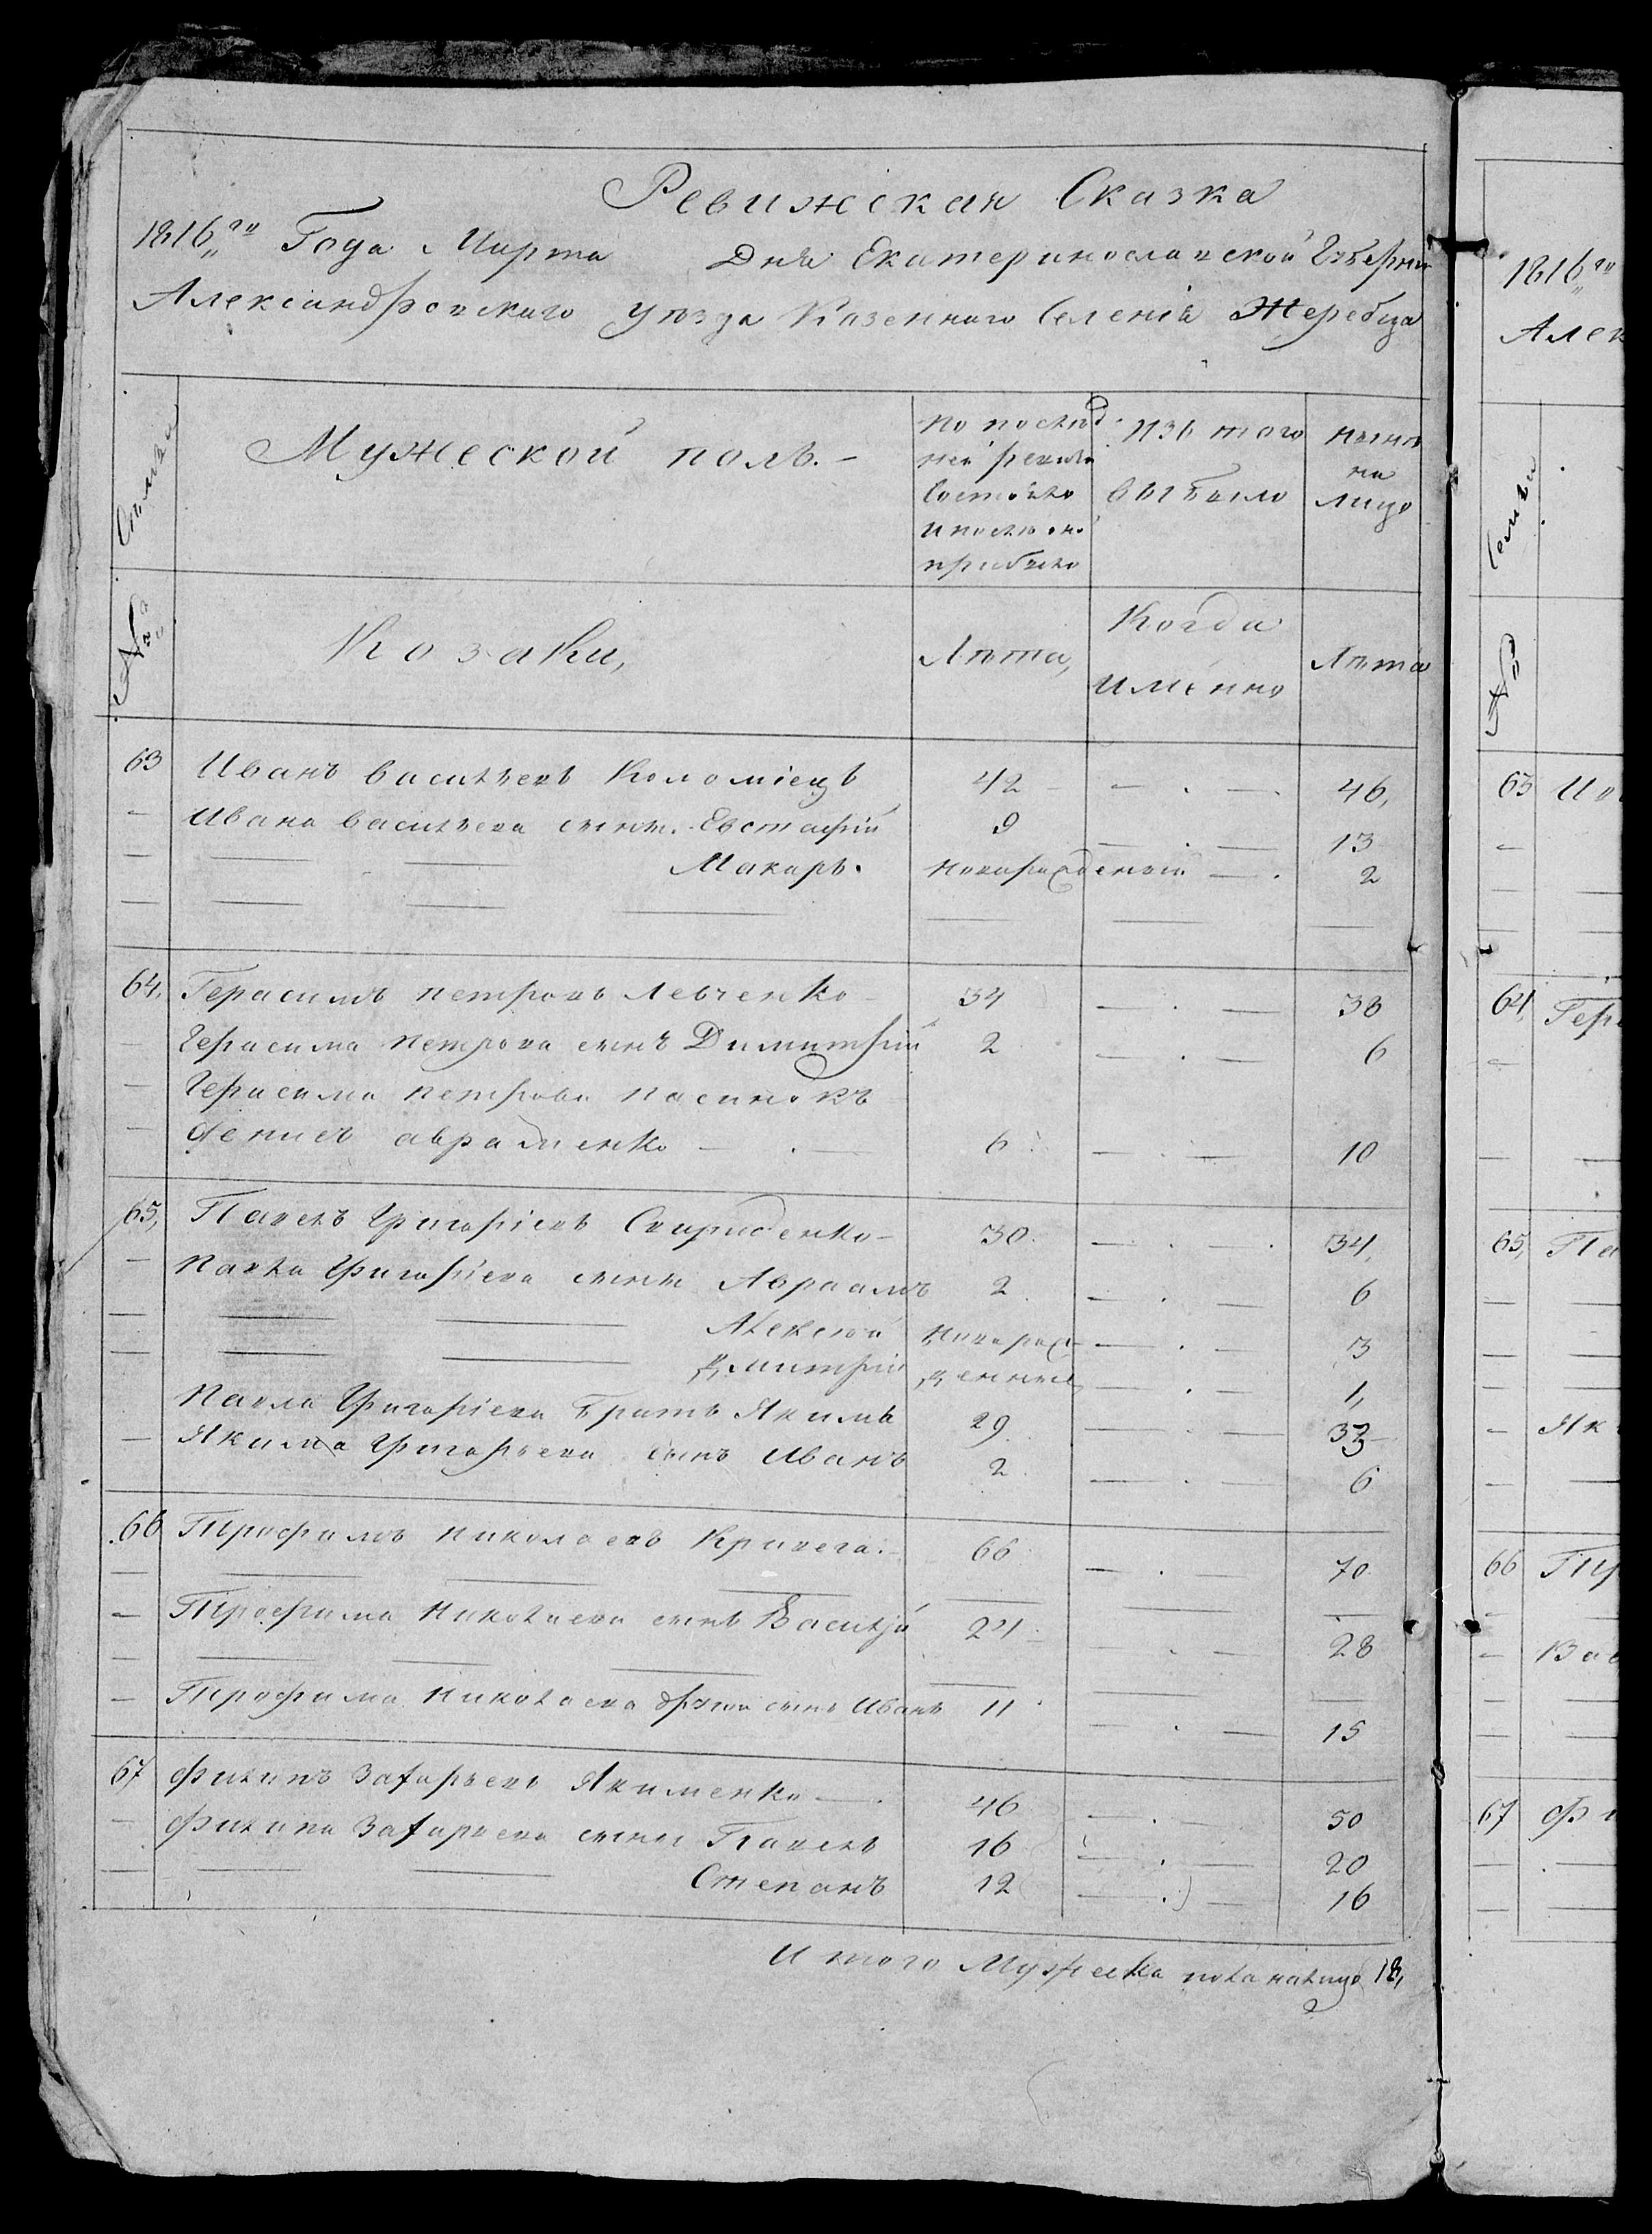 Ревижская Сказка
1816„го Года Марта Дня Екатеринославской Губерніи
Александровского уѣзда Казенного Селенія Жеребца
Семьи
Мужеской полъ. –
По послѣд
ней ревизіи
Состояло
и послѣ оной
прибыло
Изъ того
выбыло
нынѣ
на
лицо
№
Козаки,
Лѣта,
Когда
имѣнно
Лѣта
63 Иванъ васильевъ Коломіецъ 42 – — . — . 46,
– Ивана васильева сынъ. Евстафій 9 — . — 13
— — — Макаръ. Новорожденный — . 2
64, Герасимъ петровъ Левченко 34 — . — 38
— Герасима петрова сынъ Димитрій 2 — . — 6
— Герасима петрова пасинокъ
— Денисъ авраменко — . — 6 — . — 10
65, Павелъ Григорієвъ Свириденко – 30. — . — . 34,
— Павла Григорієва сыны Авраамъ 2 — . — 6
— — — Алексѣй Новорож — . — 3
— — — Дмитрій денные — . — 1,
Павла Григорієва братъ Якимъ 29. — . — 33
— Якима Григорьева сынъ Иванъ 2. — . — 6
66 Трофимъ Николаевъ Кривега. – 66 — . — 70
— Трофима Николаева сынъ Василій 24 — . — 28
— Трофима Николаева другой сынъ Иванъ 11 — . — 15
67 Филипъ Захарьевъ Якименко — . 46 — . — 50
— Филипа Захарьева сыны Павелъ 16 — . — 20
— — — Степанъ 12 — . — 16
И того Мужеска пола налицо 18,
1816„го
Алек
Семьи
№
63 Ив
64, Гера
65, Па
– Як
66 Тр
– Вас
67 Фи